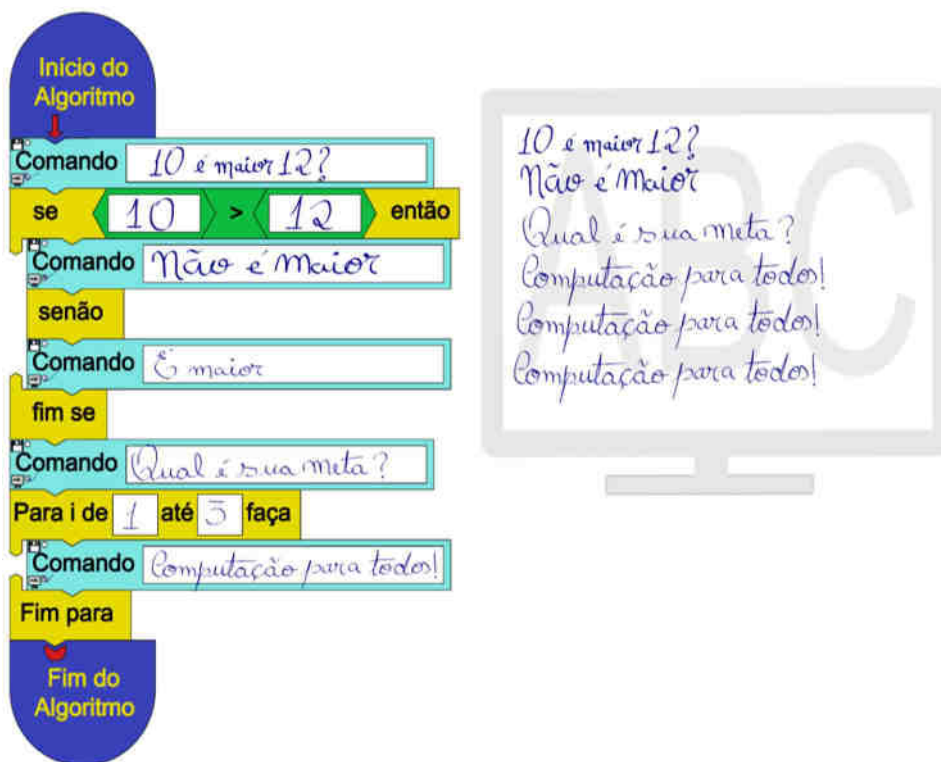 Início do
Algoritmo
Comando 10 é maior 12?
se 10 > 12 então
Comando Não é Maior
senão
Comando É maior
fim se
Comando Qual é sua meta?
Para i de 1 até 3 faça
Comando Computação para todos!
Fim para
Fim do
Algoritmo
ABC
10 é maior 12?
Não é Maior
Qual é sua meta?
Computação para todos!
Computação para todos!
Computação para todos!